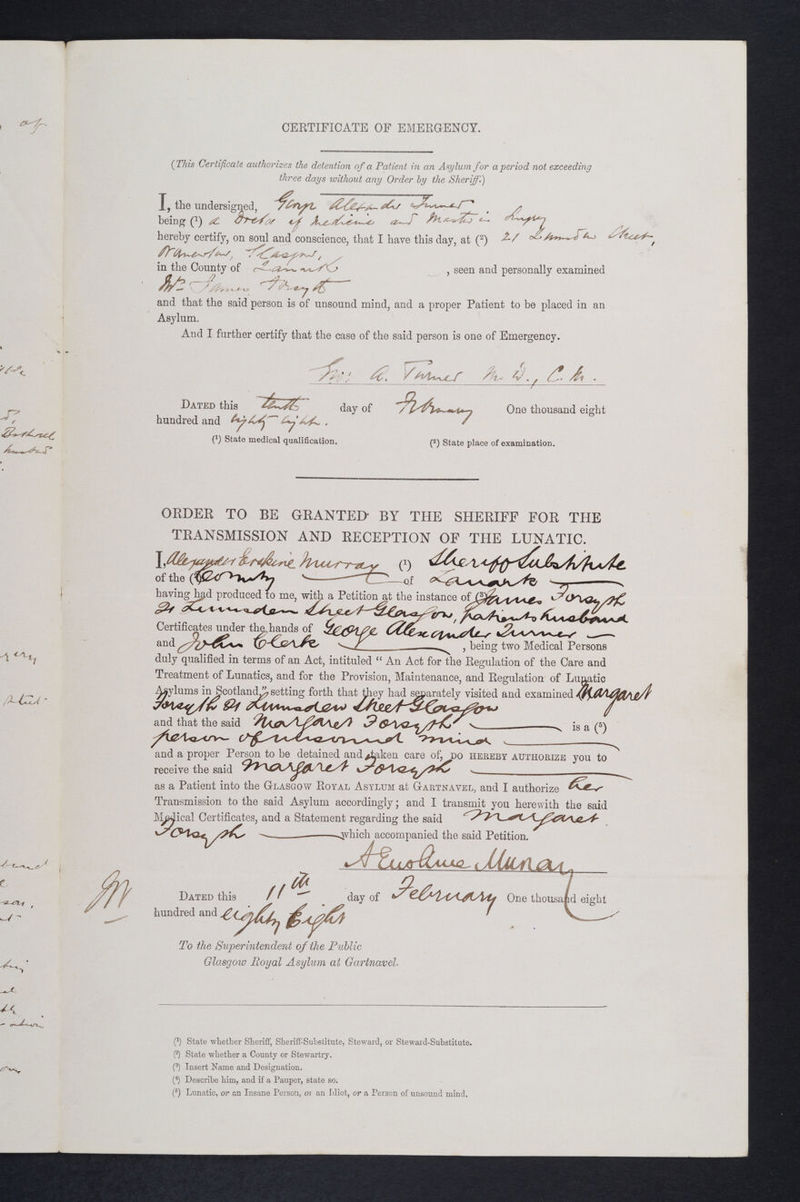 CERTIFICATE OF EMERGENCY.
(This Certificate authorizes the detention of a Patient in an Asylum for a period not exceeding
three days without any Order by the Sheriff.)
I, the undersigned, George Alexander Turner
being (1) a Doctor of Medicine and Master in Surgery
hereby certify, on soul and conscience, that I have this day, at (2) 21 Lumsden Street,
Glasgow,
in the County of Lanark , seen and personally examined
Mrs James Forsyth
and that the said person is of unsound mind, and a proper Patient to be placed in an
Asylum.
And I further certify that the case of the said person is one of Emergency.
Geo: A. Turner M.D., C.M.
DATED this tenth day of February One thousand eight
hundred and eighty eight.
(1) State medical qualification. (2) State place of examination.
ORDER TO BE GRANTED BY THE SHERIFF FOR THE
TRANSMISSION AND RECEPTION OF THE LUNATIC.
I, Alexander Erskine Murray (1) Sheriff Substitute
of the (2) County of Lanark
having had produced to me, with a Petition at the instance of (3) James Forsyth
21 Lumsden Street Glasgow, patient's husband
Certificates under the hands of George Alexander Turner
and John Clerk , being two Medical Persons
duly qualified in terms of an Act, intituled “ An Act for the Regulation of the Care and
Treatment of Lunatics, and for the Provision, Maintenance, and Regulation of Lunatic
Asylums in Scotland,” setting forth that they had separately visited and examined Margaret
Forsyth 21 Lumsden Street Glasgow
and that the said Margaret Forsyth is a (5)
person of unsound mind
and a proper Person to be detained and taken care of, DO HEREBY AUTHORIZE you to
receive the said Margaret Forsyth
as a Patient into the GLASGOW ROYAL ASYLUM at GARTNAVEL, and I authorize her
Transmission to the said Asylum accordingly; and I transmit you herewith the said
Medical Certificates, and a Statement regarding the said Margaret
Forsyth which accompanied the said Petition.
A Erskine Murray
DATED this 11th day of February One thousand eight
hundred and eighty Eight
To the Superintendent of the Public
Glasgow Royal Asylum at Gartnavel.
(1) State whether Sheriff, Sheriff-Substitute, Steward, or Steward-Substitute.
(2) State whether a County or Stewartry.
(3) Insert Name and Designation.
(4) Describe him, and if a Pauper, state so.
(5) Lunatic, or an Insane Person, or an Idiot, or a Person of unsound mind.